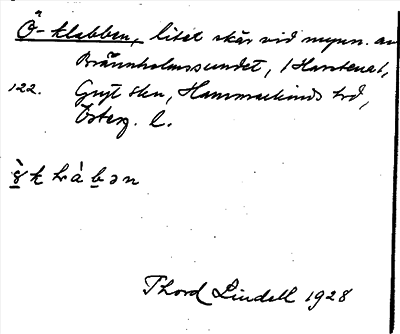 Ö-klabben, litet skär vid mynn. av
Brännholmssundet, (Harstena),
122. Gryt skn, Hammarkinds hd,
Österg. l.
Thord Lindell 1928